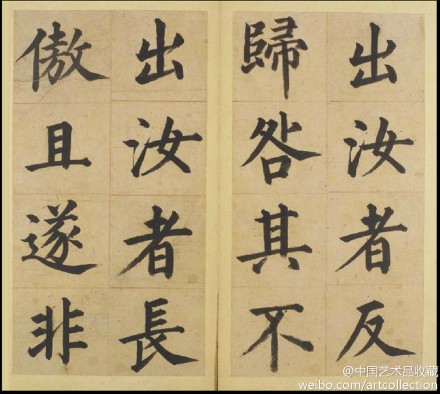 出汝者反
歸咎其不
出汝者長
傲且遂非
@中国艺术品收藏
weibo.com/artcollection